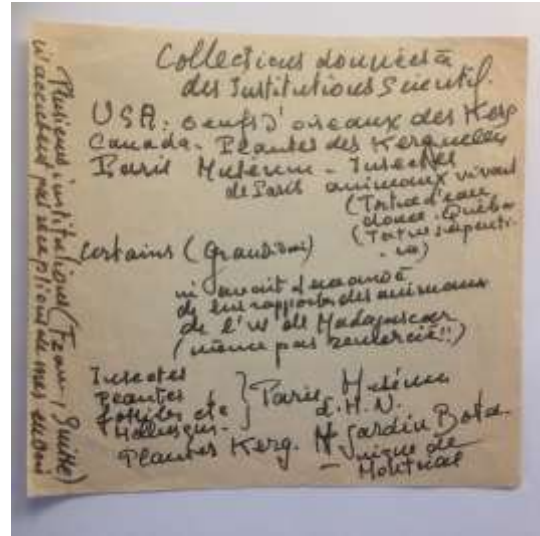 Collections données à
des Institutions Scientif.
USA. oeufs d'oiseaux des Kerg
Canada - Plantes des Kerguelen
Paris Muséum - Insectes
de Paris animaux vivant
(Tortue d'eau
douce - Québec
(Tortue serpenti-
- na)
Certains (Grandidier)
m'avait demandé
de lui rapporter des animaux
de l'W de Madagascar
(même pas remercié!!)
Insectes
Plantes
fossiles etc
Mollusques -
} Paris Muséum
d'H.N.
Plantes Kerg. Jardin Bota-
nique de
Montréal
Plusieurs institutions (France, Suisse)
n'accusent pas réceptions de mes